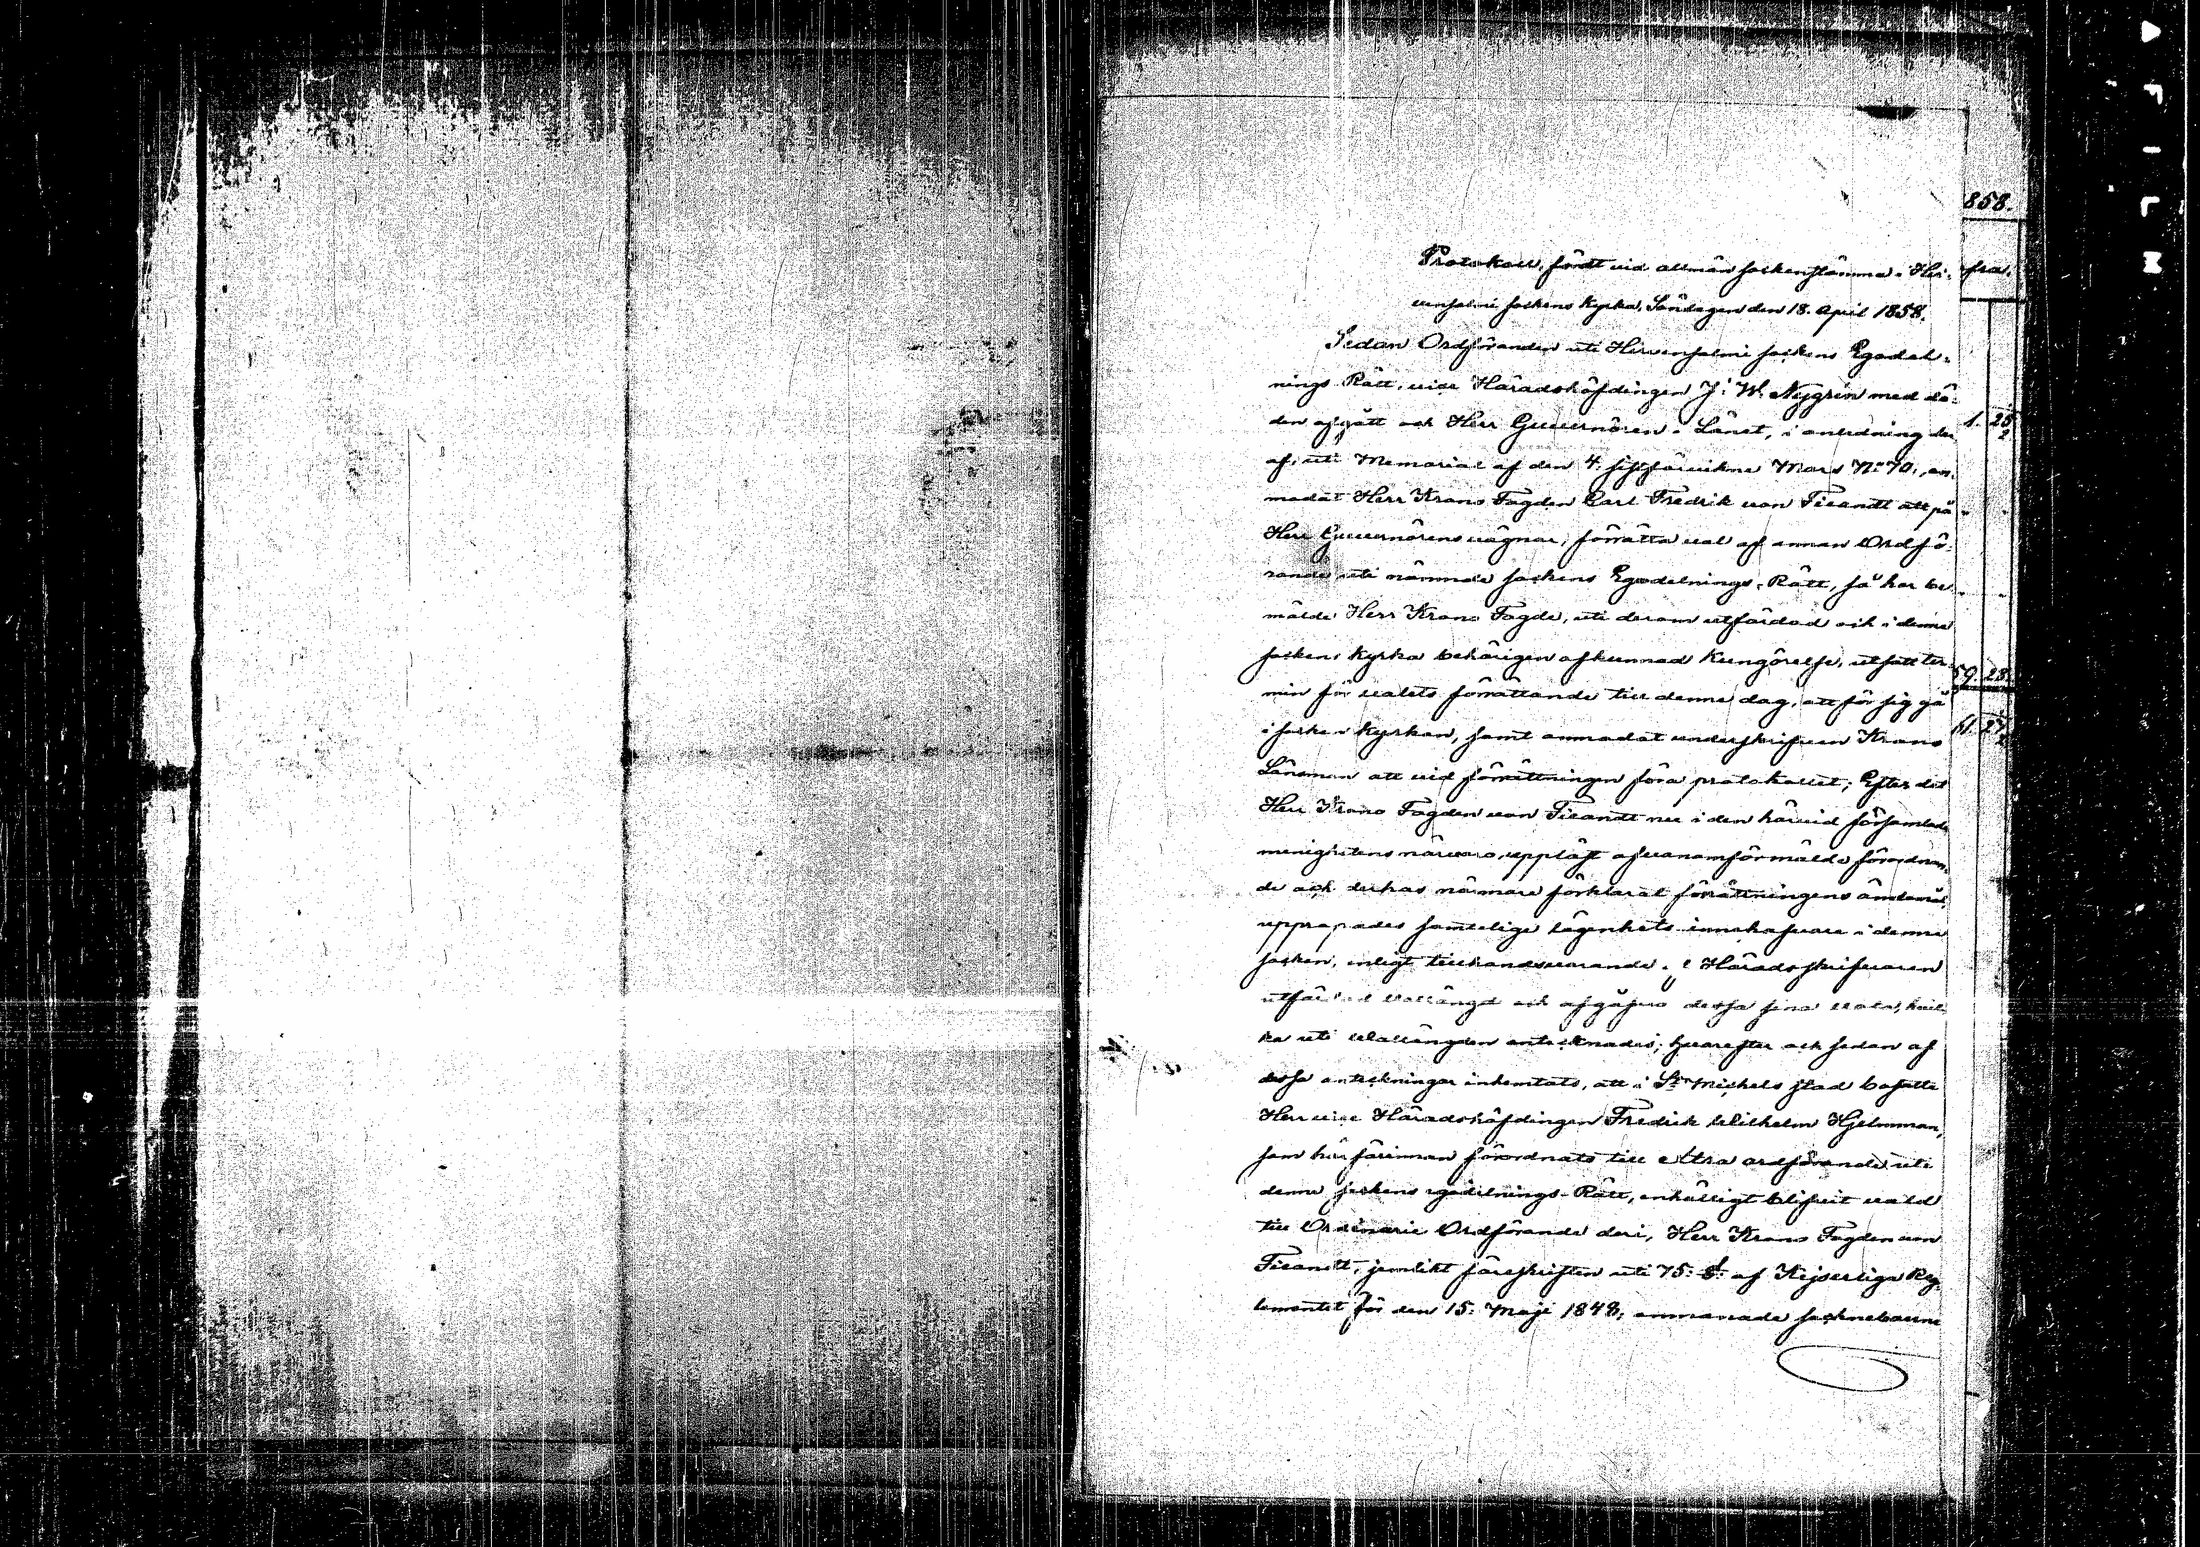 Protokoll, fördt vid allmän sockenstämma i Hir-
vensalmi sockens kyrka, Söndagen den 18. April 1858.
Sedan Ordföranden uti Hirvensalmi sockens Egodel-
nings Rätt, vice Häradshöfdingen J. W. Nygrén med dö-
den afgått och Herr Guvernören i Länet, i anledning der
af, uti Memorial af den 4. sistförvikne Mars No 70, an-
modat Herr Krono Fogden Carl Fredrik von Fieandt att på
Herr Guvernörens vägnar, förrätta val af annan Ordfö-
rande uti nämnde sockens Egodelnings-Rätt, så har be-
mälde Herr Krono Fogde, uti derom utfärdad och i denne
sockens kyrka behörigen afkunnad Kungörelse, utsatt ter-
min för valets förrättande till denne dag, att för sig gå
i socken kyrkan, samt anmodat underskrifven Krono
Länsman att vid förrättningen föra protokollet; Efter det
Herr Krono Fogden von Fieandt nu i den härvid församlade
menighetens närvaro, uppläst ofvananförmälde förordnan-
de och derhos närmare förklarat förrättningens ändamål,
uppropades samtelige lägenhets innehafvare i denne
socken, enligt tillhandavarande, af Häradsskrifvaren
utfärdad vallängd och afgåfvo dessa sina vota, hvil-
ka uti vallängden antecknades; hvarefter och sedan af
dessa anteckningar inhemtats, att i St Michels stad bosatte
Herr vice Häradshöfdingen Fredrik Wilhelm Hjelmman,
som här förinnan förordnats till extra ordförande uti
denne sockens egodelnings-Rätt, enhälligt blifvit vald
till Ordinarie Ordförande deri, Herr Krono Fogden von
Fieandt, jemlikt föreskriften uti 75. §. af Kejserliga Reg-
lementet för den 15. Maji 1848, anmanade sockneboerne
858.
1. 25
59. 23.
61. 27